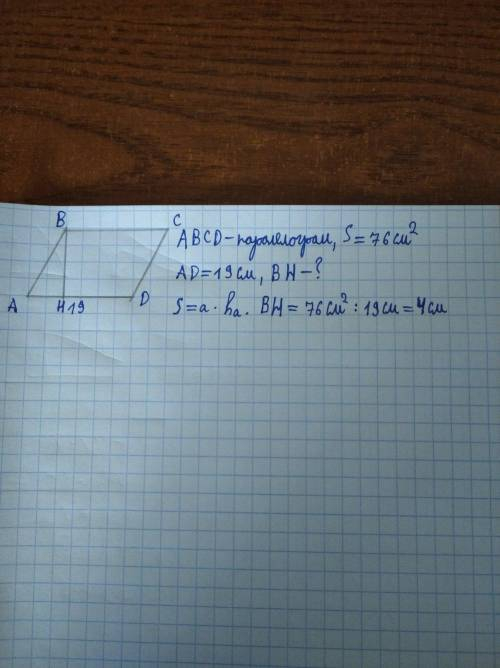 B C
ABCD-паралелограм, S=76см²
AD=19см, BH-?
A H 19 D
S=a·hₐ. BH=76см²:19см=4см